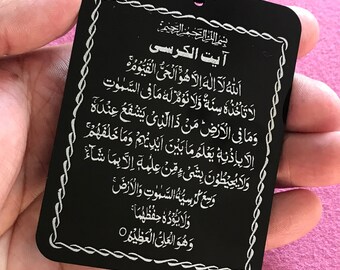 بِسْمِ اللّٰهِ الرَّحْمٰنِ الرَّحِيْمِ
آیت الکرسی
اَللّٰهُ لَآ اِلٰهَ اِلَّا هُوَ اَلْحَیُّ الْقَیُّوْمُ
لَا تَاْخُذُهٗ سِنَةٌ وَّلَا نَوْمٌ لَهٗ مَا فِی السَّمٰوٰتِ
وَمَا فِی الْاَرْضِ مَنْ ذَا الَّذِیْ یَشْفَعُ عِنْدَهٗٓ
اِلَّا بِاِذْنِهٖ یَعْلَمُ مَا بَیْنَ اَیْدِیْهِمْ وَمَا خَلْفَهُمْ
وَلَا یُحِیْطُوْنَ بِشَیْءٍ مِّنْ عِلْمِهٖٓ اِلَّا بِمَا شَآءَ
وَسِعَ كُرْسِیُّهُ السَّمٰوٰتِ وَالْاَرْضَ
وَلَا یَئُوْدُهٗ حِفْظُهُمَا
وَهُوَ الْعَلِیُّ الْعَظِیْمُ